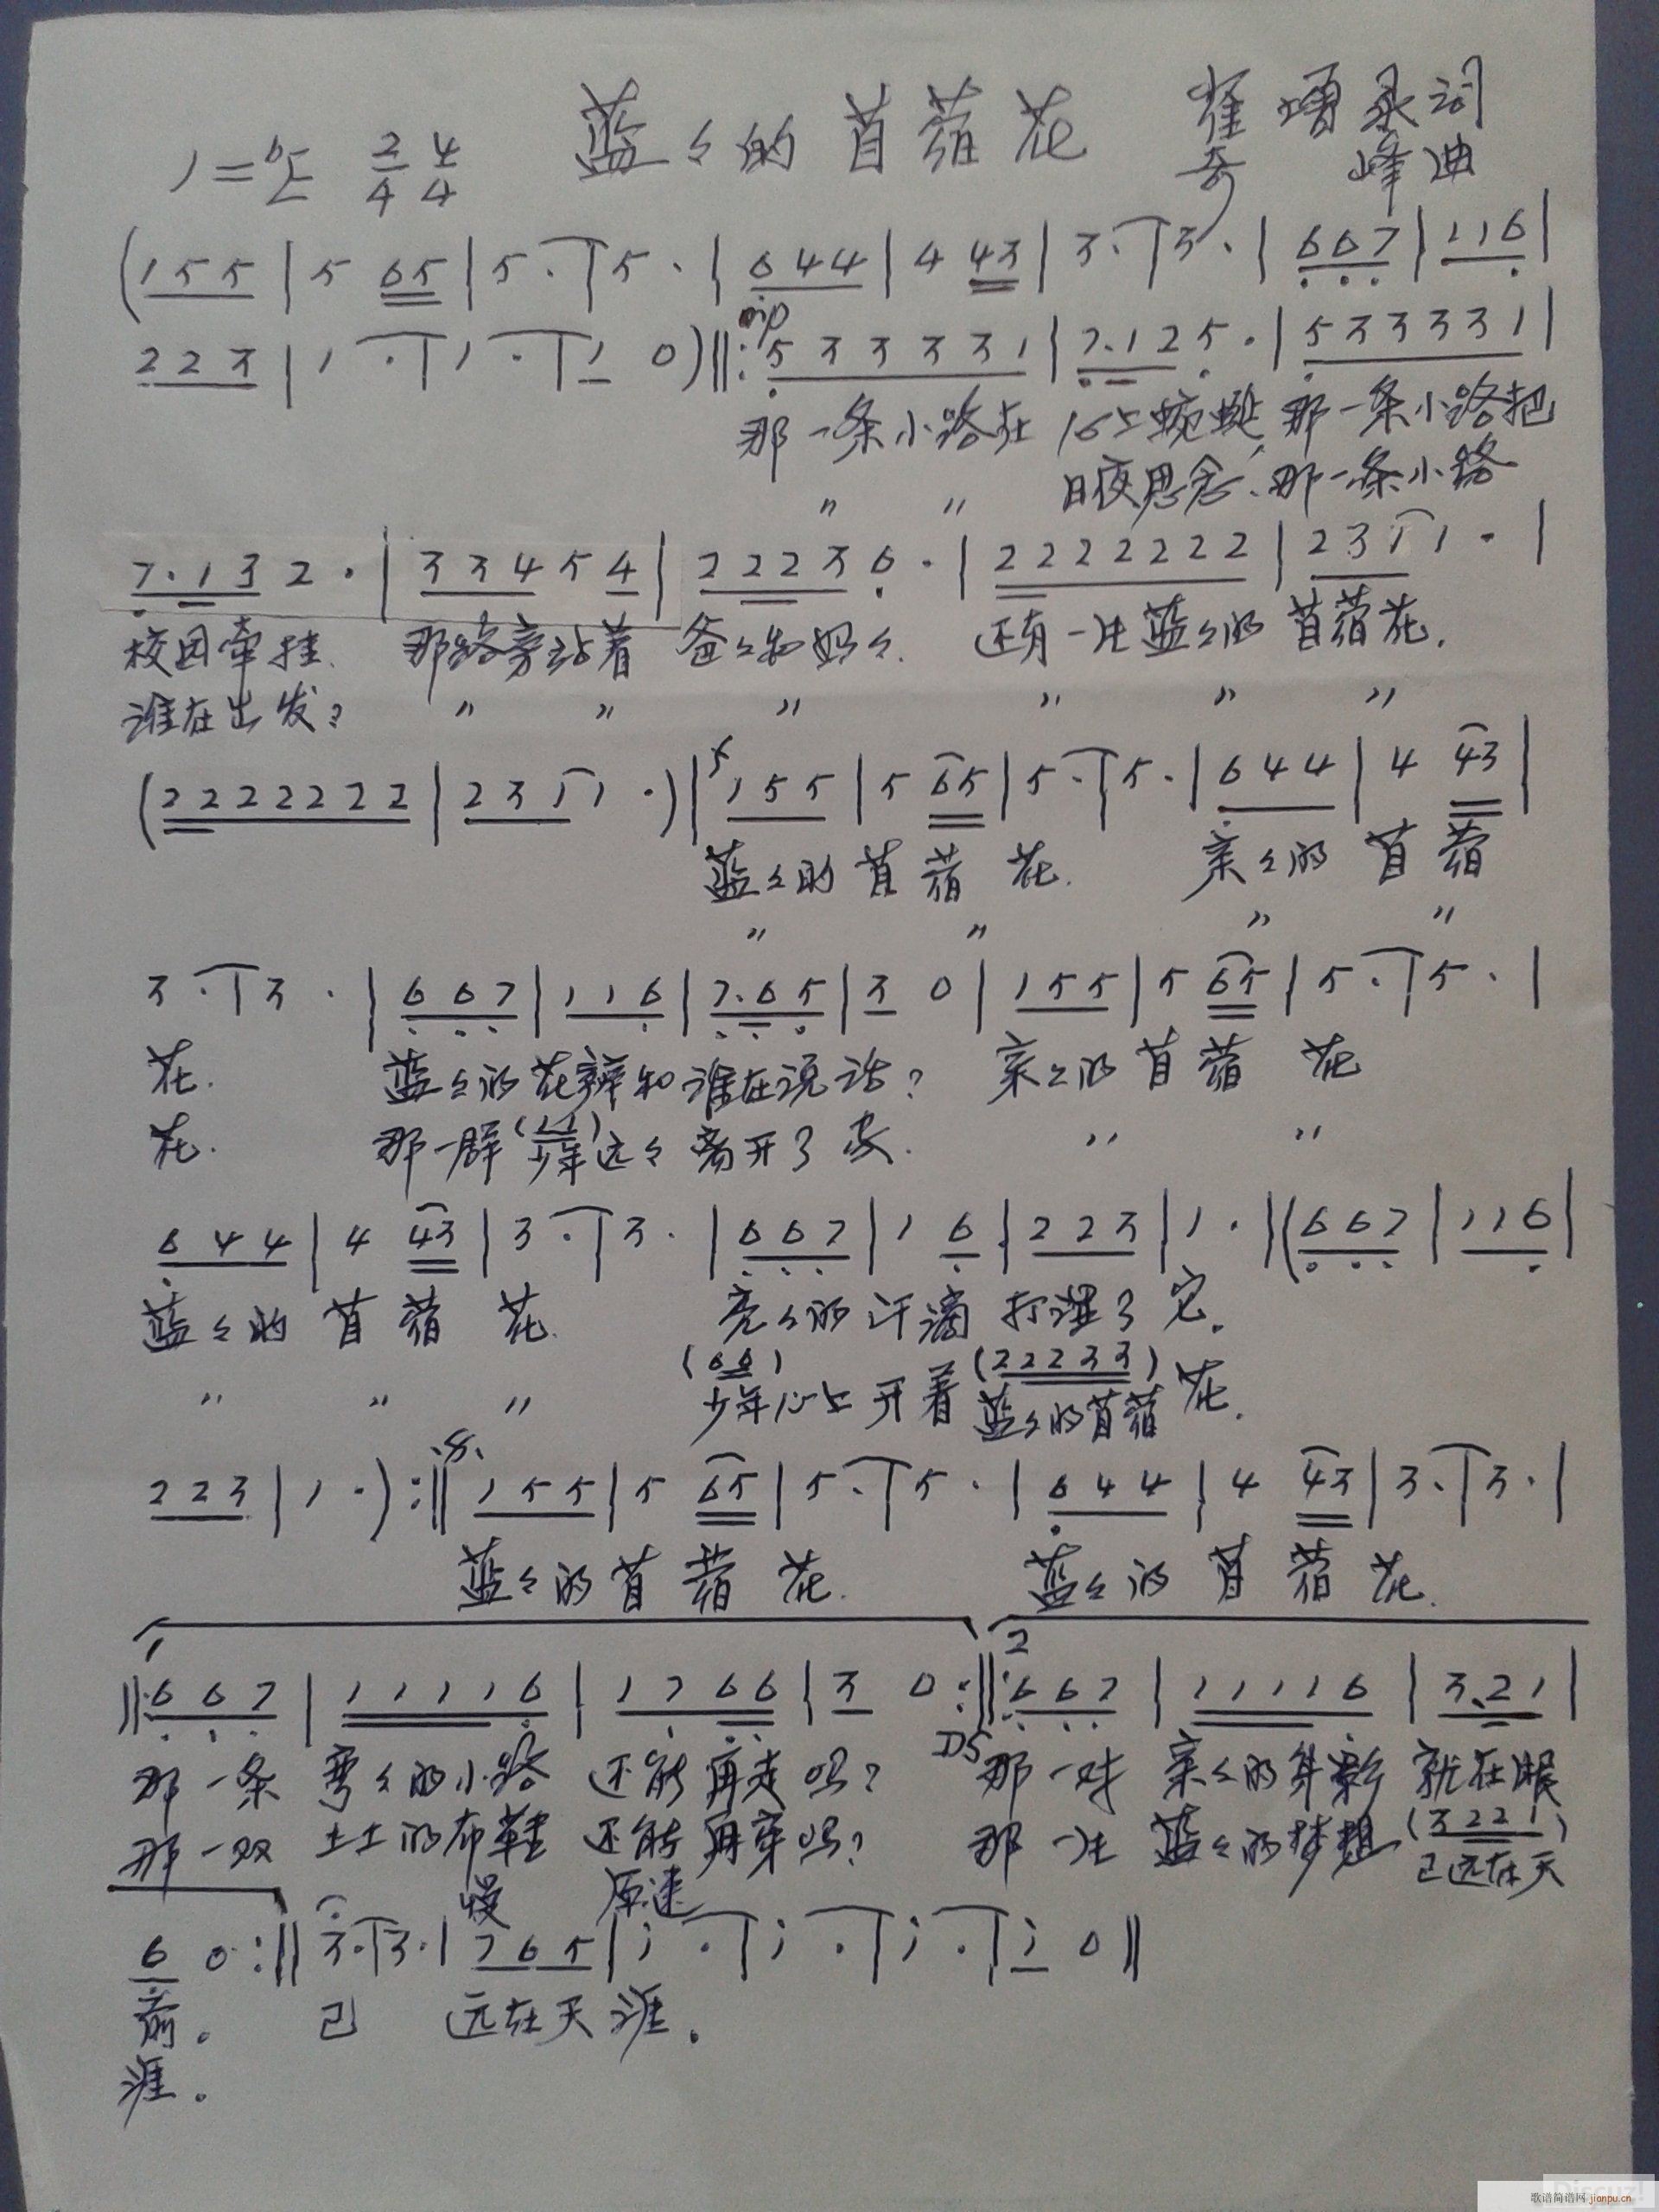 蓝々的苜蓿花
崔增录词
1=♭E 2/4 4/4
奇峰曲
(1 5 5 | 5 6 5 | 5 · | 5 · | 6 4 4 | 4 4 3 | 3 · | 3 · | 6 6 7 | 1 1 6 |
mp
2 2 3 | 1 · | 1 · | 1 0 ) ‖: 5 3 3 3 3 1 | 7 · 1 2 5 · | 5 3 3 3 3 1 |
那一条小路在 心上蜿蜒, 那一条小路把
〃 〃 日夜思念、那一条小路
7 · 1 3 2 · | 3 3 4 5 4 | 2 2 2 3 6 · | 2 2 2 2 2 2 2 | 2 3 1 1 · |
校园牵挂. 那路旁站着 爸々和妈々. 还有一片蓝々的 苜蓿花.
谁在出发? 〃 〃 〃 〃 〃 〃
(2 2 2 2 2 2 2 | 2 3 1 1 · ) | f 1 5 5 | 5 6 5 | 5 · | 5 · | 6 4 4 | 4 4 3 |
蓝々的 苜 蓿 花. 亲々的 苜 蓿
〃 〃 〃 〃
3 · | 3 · | 6 6 7 | 1 1 6 | 7 · 6 5 | 3 0 | 1 5 5 | 5 6 5 | 5 · | 5 · |
花. 蓝々的花瓣和谁在说话? 亲々的 苜 蓿 花
(1 1)
花. 那一群少年远々离开了家. 〃 〃
6 4 4 | 4 4 3 | 3 · | 3 · | 6 6 7 | 1 6 | 2 2 3 | 1 · | (6 6 7 | 1 1 6 |
蓝々的 苜 蓿 花. 亮々的汗滴 打湿了它.
(6 6) (2 2 2 3 3)
〃 〃 〃 少年心上开着蓝々的苜蓿花.
2 2 3 | 1 · ) :‖ 1 5 5 | 5 6 5 | 5 · | 5 · | 6 4 4 | 4 4 3 | 3 · | 3 · |
蓝々的 苜 蓿 花. 蓝々的 苜 蓿 花.
1 2
‖: 6 6 7 | 1 1 1 1 6 | 1 7 6 6 | 3 0 :‖: 6 6 7 | 1 1 1 1 6 | 3 · 2 1 |
那一条 弯々的小路 还能再走吗? DS 那一对 亲々的身影 就在眼
(3 2 2 1)
那一双 土土的布鞋 还能再穿吗? 那一片 蓝々的梦想 已远在天
慢 原速
6 0 :‖ 3 · | 3 · | 7 6 5 | i · | i · | i · | i 0 ‖
前。 已 远在天涯.
涯。
Discuz!
歌谱简谱网 jianpu.cn